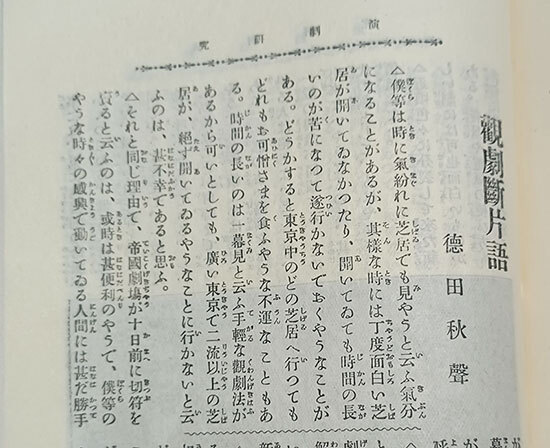 演劇研究
觀劇斷片語
德田秋聲
△僕等は時に氣紛れに芝居でも見やうと云ふ氣分
になることがあるが、其樣な時には丁度面白い芝
居が開いてゐなかつたり、開いてゐても時間の長
いのが苦になつて遂行かないでおくやうなことが
ある。どうかすると東京中のどの芝居へ行つても
どれもお可憎さまを食ふやうな不運なこともあ
る。時間の長いのは一幕見と云ふ手輕な觀劇法が
あるから可いとしても、廣い東京で二流以上の芝
居が、絕ず開いてゐるやうなことに行かないと云
ふのは、甚不幸であると思ふ。
△それと同じ理由で、帝國劇場が十日前に切符を
賣ると云ふのは、或時は甚便利のやうで、僕等の
やうな時々の感興で動いてゐる人間には甚だ勝手